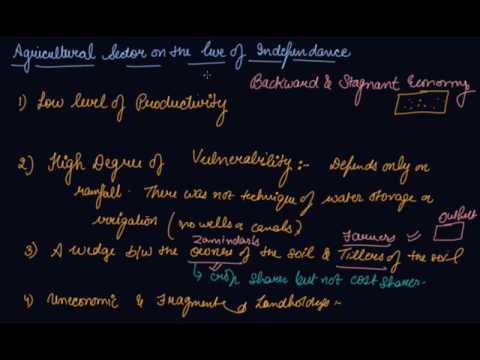 Agricultural Sector on the Eve of Independance
Backward & Stagnant Economy
1) Low level of Productivity
2) High Degree of Vulnerability :- Depends only on
rainfall. There was not technique of water storage or
irrigation (no wells or canals)
Zamindaris Farmers Output
3) A wedge b/w the owners of the soil & Tillers of the soil
↳ crop sharer but not cost sharer.
4) Uneconomic & Fragment of Landholdings :-